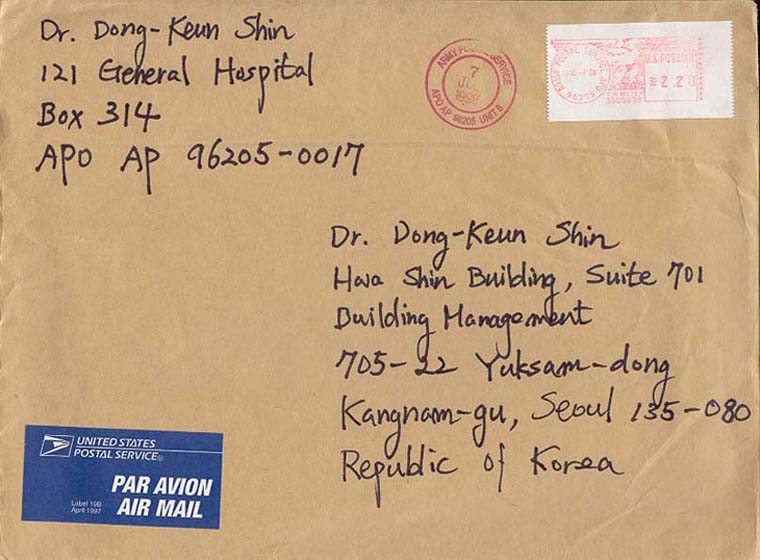 Dr. Dong-Keun Shin
121 General Hospital
Box 314
APO AP 96205-0017
ARMY POSTAL SERVICE
7
1998
APO AP 96205 UNIT 5
U.S. POSTAGE
2.20
Dr. Dong-Keun Shin
Hwa Shin Building, Suite 701
Building Management
705-22 Yuksam-dong
Kangnam-gu, Seoul 135-080
Republic of Korea
UNITED STATES
POSTAL SERVICE
PAR AVION
AIR MAIL
Label 19B
April 1997